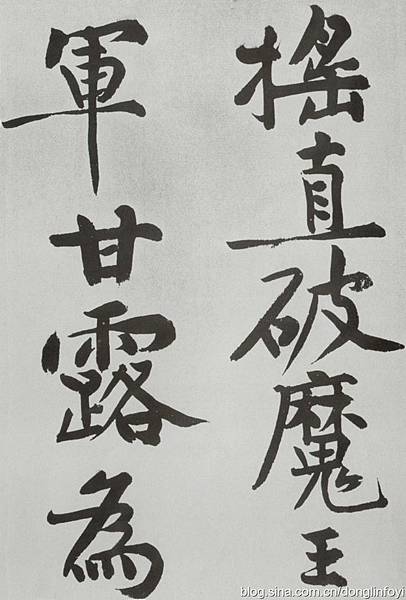 搖直破魔王
軍甘露為
blog.sina.com.cn/donglinfoyi